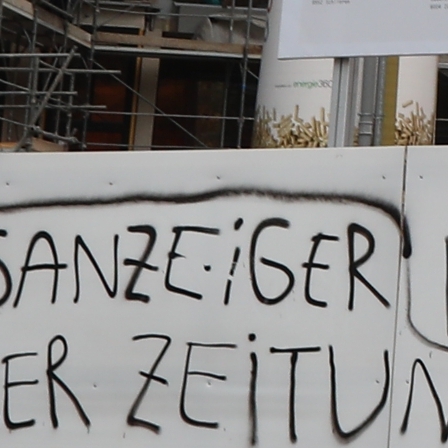 energie360°
SANZEIGER
ER ZEITUN